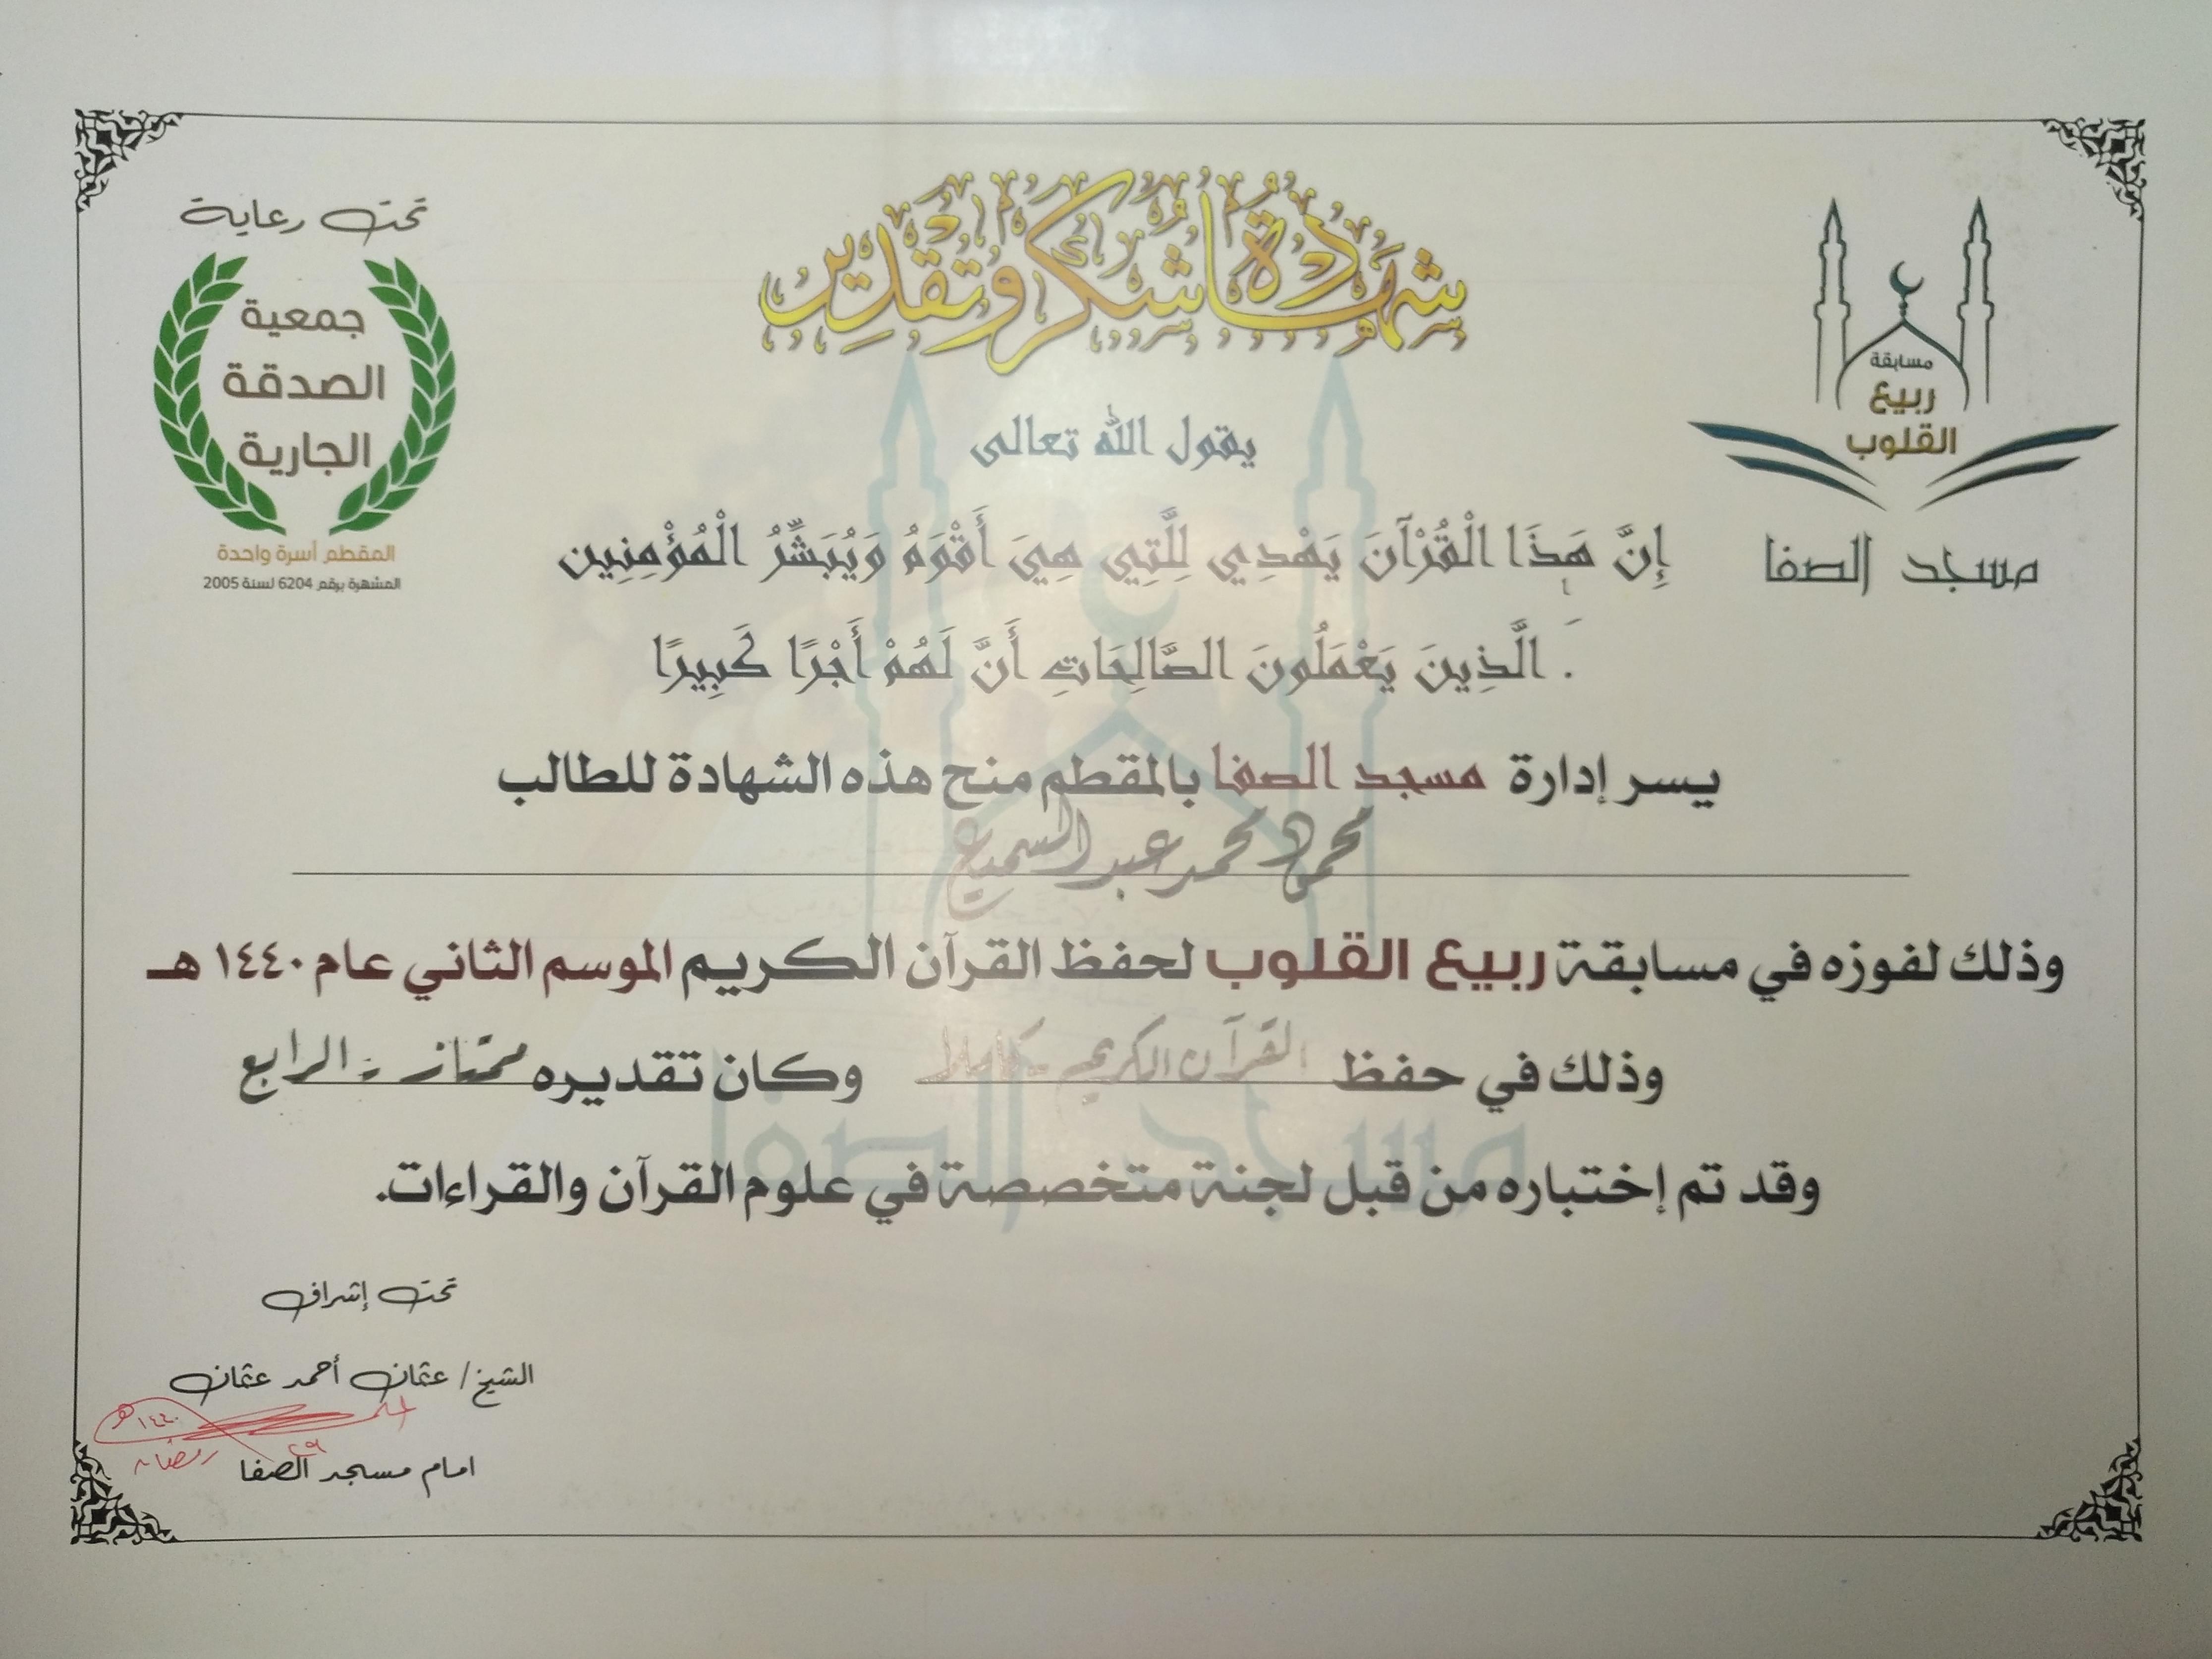 شهادة شكر وتقدير
مسابقة
ربيع
القلوب
مسجد الصفا
تحت رعاية
جمعية
الصدقة
الجارية
المقطم أسرة واحدة
المشهرة برقم 6204 لسنة 2005
يقول الله تعالى
إِنَّ هَذَا الْقُرْآنَ يَهْدِي لِلَّتِي هِيَ أَقْوَمُ وَيُبَشِّرُ الْمُؤْمِنِين
. الَّذِينَ يَعْمَلُونَ الصَّالِحَاتِ أَنَّ لَهُمْ أَجْرًا كَبِيرًا
يسر إدارة مسجد الصفا بالمقطم منح هذه الشهادة للطالب
محمود محمد عبد السميع
وذلك لفوزه في مسابقة ربيع القلوب لحفظ القرآن الكريم الموسم الثاني عام ١٤٤٠ هـ
وذلك في حفظ القرآن الكريم - كاملا وكان تقديره ممتاز - الرابع
وقد تم إختباره من قبل لجنة متخصصة في علوم القرآن والقراءات.
مسجد الصفا
تحت إشراف
الشيخ / عثمان أحمد عثمان
١٤٤٠ هـ
٢٩ رمضان
امام مسجد الصفا